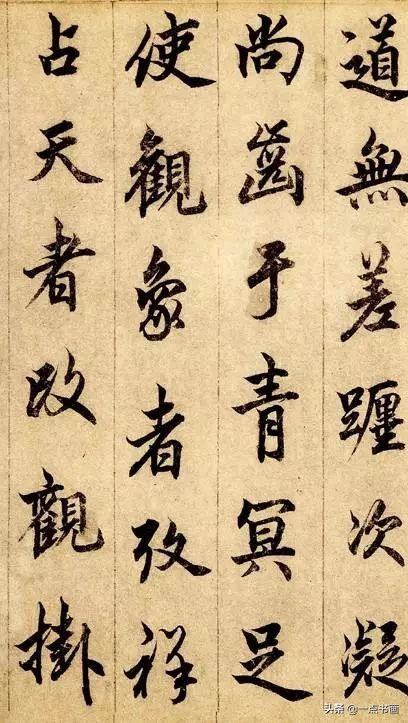 道無差躔次凝
尚齒于青冥足
使觀象者攷祥
占天者改觀掛
头条@一点书画